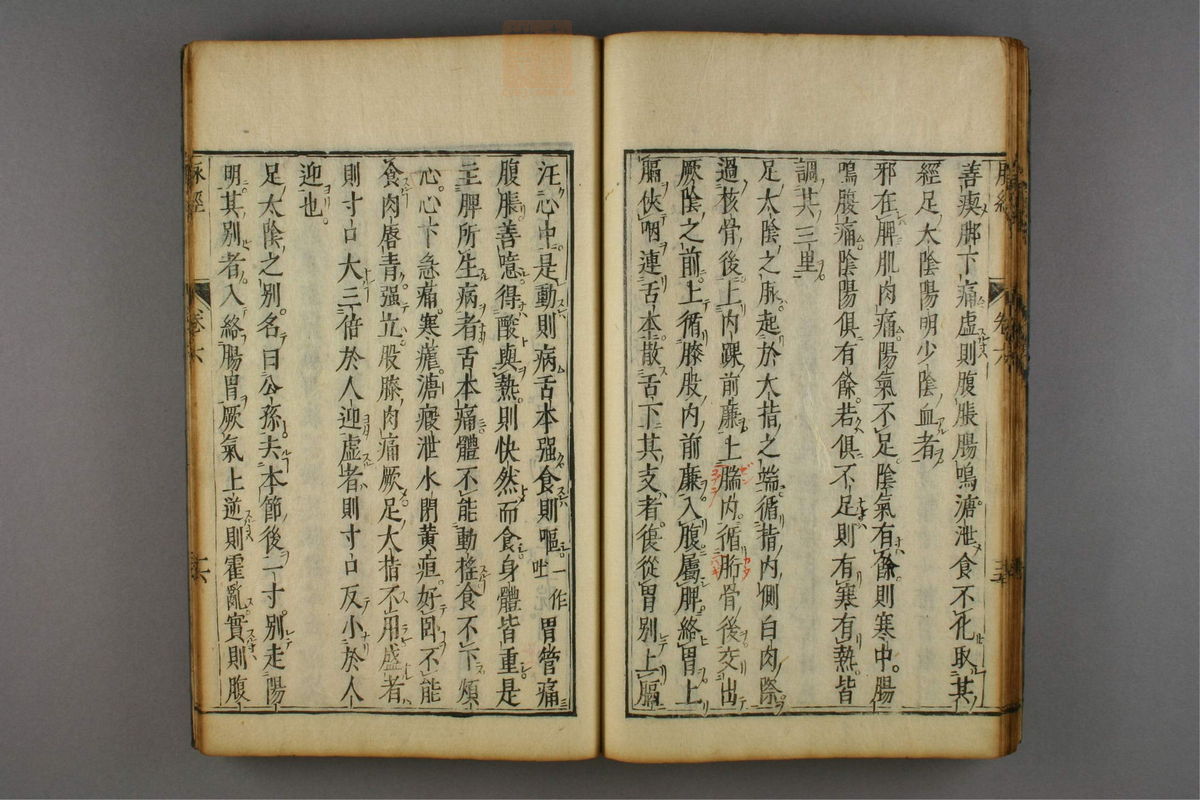 善瘈脚下痛虛則腹脹腸鳴溏泄食不化取其
經足太陰陽明少陰血者
邪在脾肌肉痛陽氣不足陰氣有餘則寒中腸
鳴腹痛陰陽俱有餘若俱不足則有寒有熱皆
調其三里
足太陰之脉起於大指之端循指內側白肉際
過核骨後上內踝前廉上腨內循䯒骨後交出
厥陰之前上循膝股內前廉入腹屬脾絡胃上
膈俠咽連舌本散舌下其支者復從胃別上膈
注心中是動則病舌本强食則嘔一作吐胃管痛
腹脹善噫得酸與熱則快然而食身體皆重是
主脾所生病者舌本痛體不能動搖食不下煩
心心下急痛寒瘧溏瘕泄水閉黃疸好臥不能
食肉唇青强立股膝內痛厥足大指不用盛者
則寸口大三倍於人迎虛者則寸口反小於人
迎也
足太陰之別名曰公孫去本節後一寸別走陽
明其別者入絡腸胃厥氣上逆則霍亂實則腹
脉經
卷六